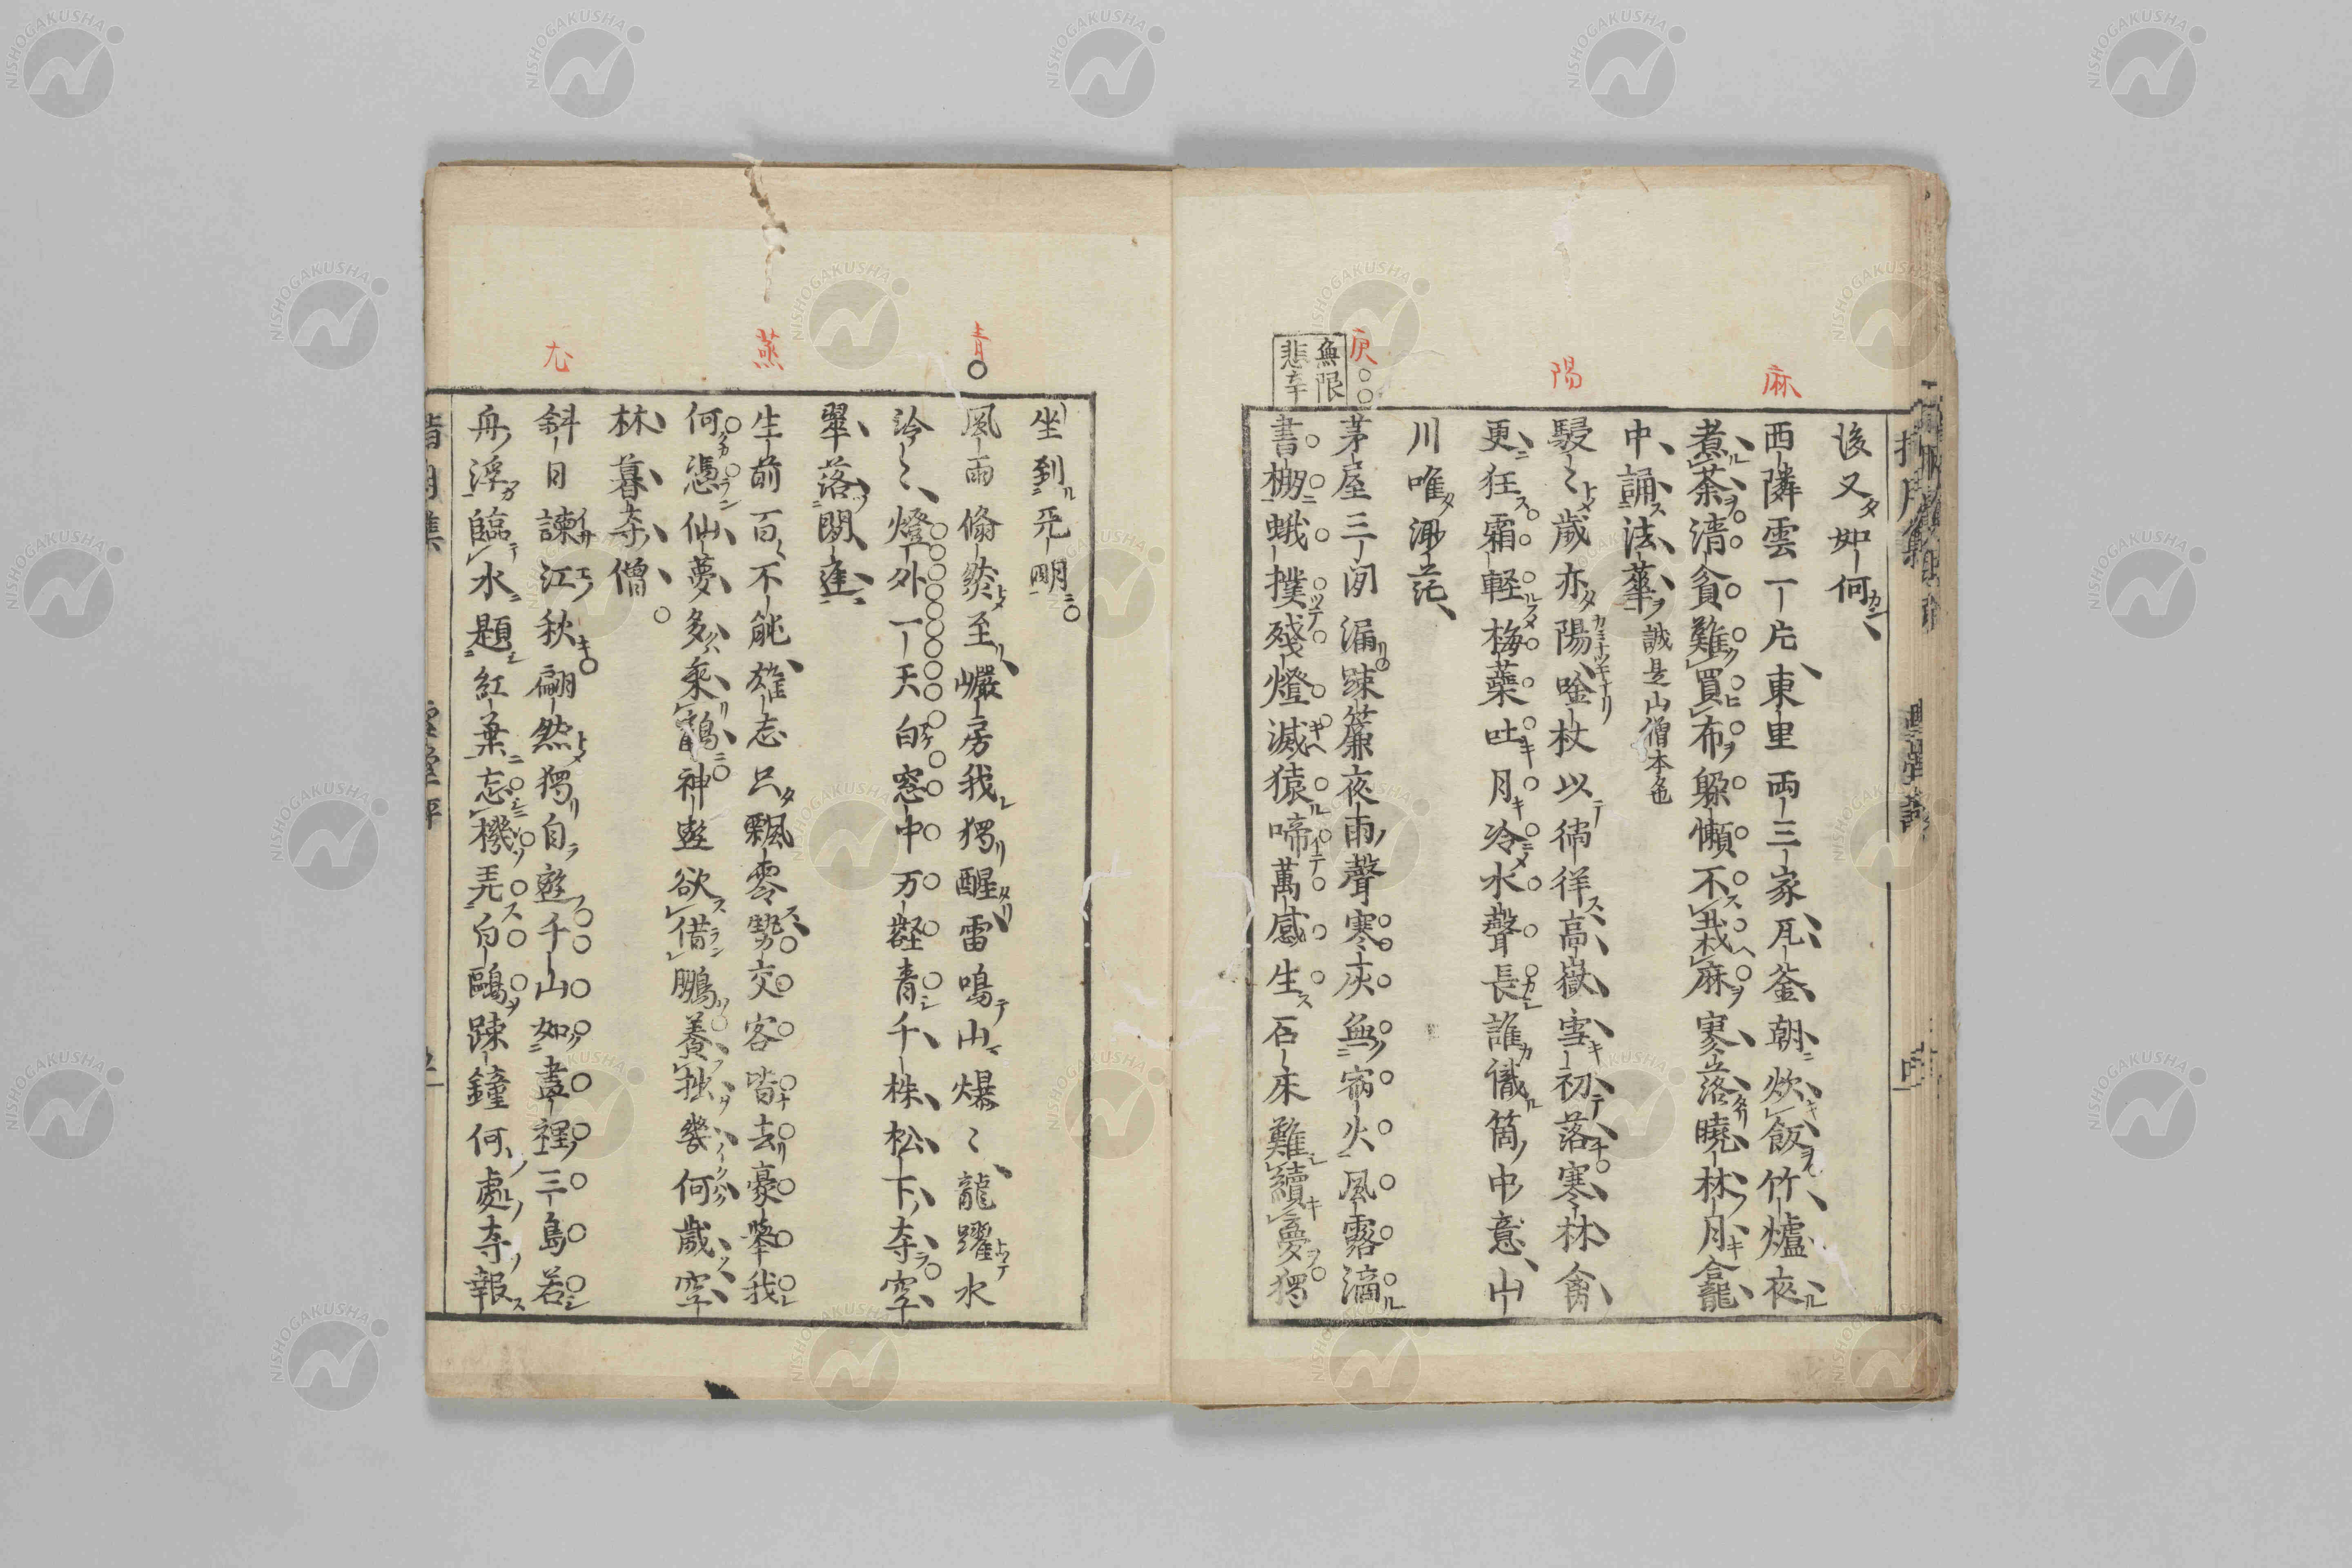 後又如何
麻
西隣雲一片東里両三家瓦釜朝炊飯竹爐夜
煮茶清貧難買布躶懶不栽麻寒落曉林月龕
中誦法華 誠是山僧本色
陽
駸〻歳亦陽唫杖以徜徉高嶽雪初落寒林禽
更狂霜軽梅蘂吐月冷水聲長誰識箇中意山
川唯渺茫
庚
茅屋三間漏疎簾夜雨聲寒灰無宿火風露滴
無限
悲辛
書棚蛾撲殘燈滅猿啼萬感生石床難續夢獨
坐到天明
青
風雨翛然至巖房我獨醒雷鳴山爆〻龍躍水
泠〻燈外一天白窓中万壑青千株松下寺空
翠落閑庭
蒸
生前百不能雄志只飄零勢交客皆去豪擧我
何憑仙夢多乘鶴神遊欲借鵬養拙幾何歳空
林暮寺僧
尤
斜日諫江秋翩然獨自遊千山如畫裡三島若
舟浮臨水題紅葉忘機弄白鷗踈鐘何處寺報